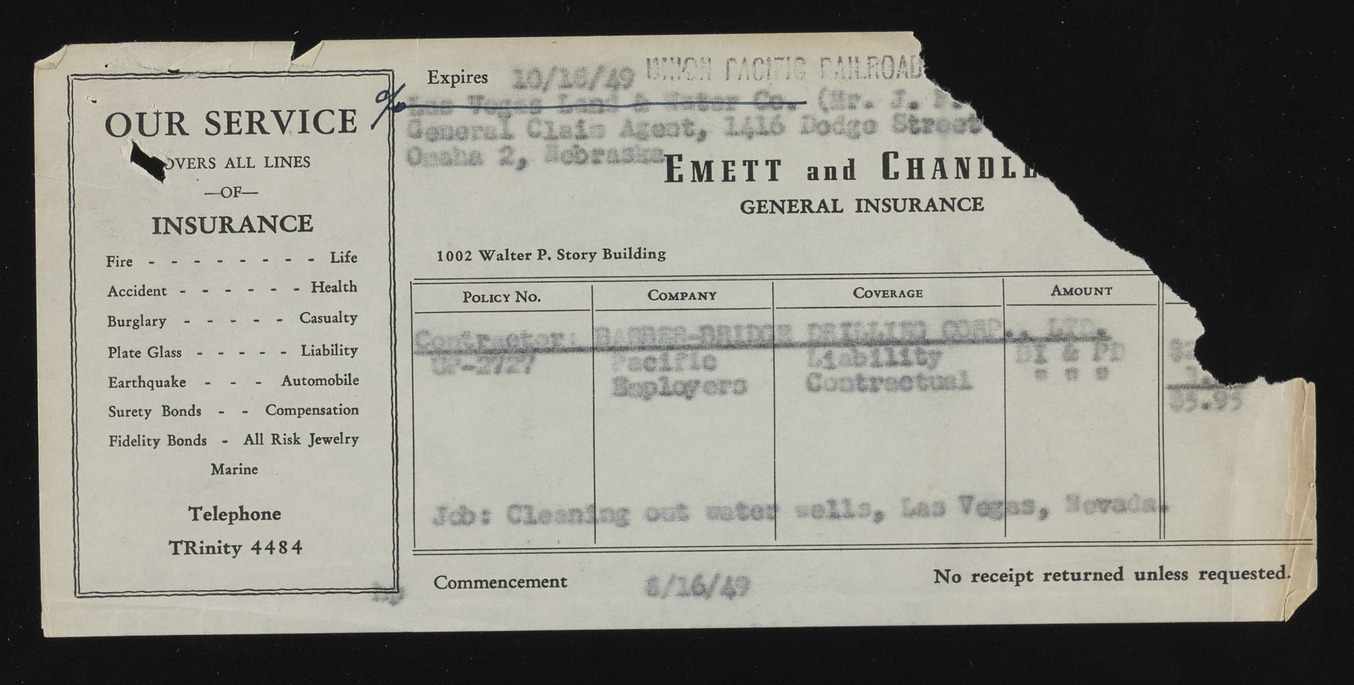 OUR SERVICE
OVERS ALL LINES
—OF—
INSURANCE
Fire - - - - - - - - Life
Accident - - - - - - Health
Burglary - - - - - Casualty
Plate Glass - - - - - Liability
Earthquake - - - Automobile
Surety Bonds - - Compensation
Fidelity Bonds - All Risk Jewelry
Marine
Telephone
TRinity 4484
Expires 10/16/49 UNION PACIFIC RAILROAD
% Las Vegas Land & Water Co. (Mr. J.
General Claim Agent, 1416 Dodge Street
Omaha 2, Nebraska
EMETT and CHANDLE
GENERAL INSURANCE
1002 Walter P. Story Building
POLICY NO. COMPANY COVERAGE AMOUNT
Contractor: DRILLING CORP., LTD.
UP-2727 Pacific Liability BI & PD
Employers Contractual " " "
$5.95
Job: Cleaning out water wells, Las Vegas, Nevada.
Commencement 8/16/49 No receipt returned unless requested.